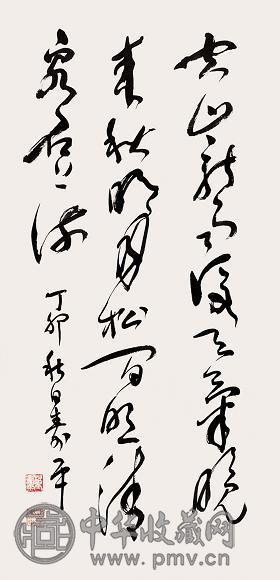 空山新雨後天氣晚
来秋明月松间照清
泉石上流
丁卯秋日寿平
中华收藏网
www.pmv.cn